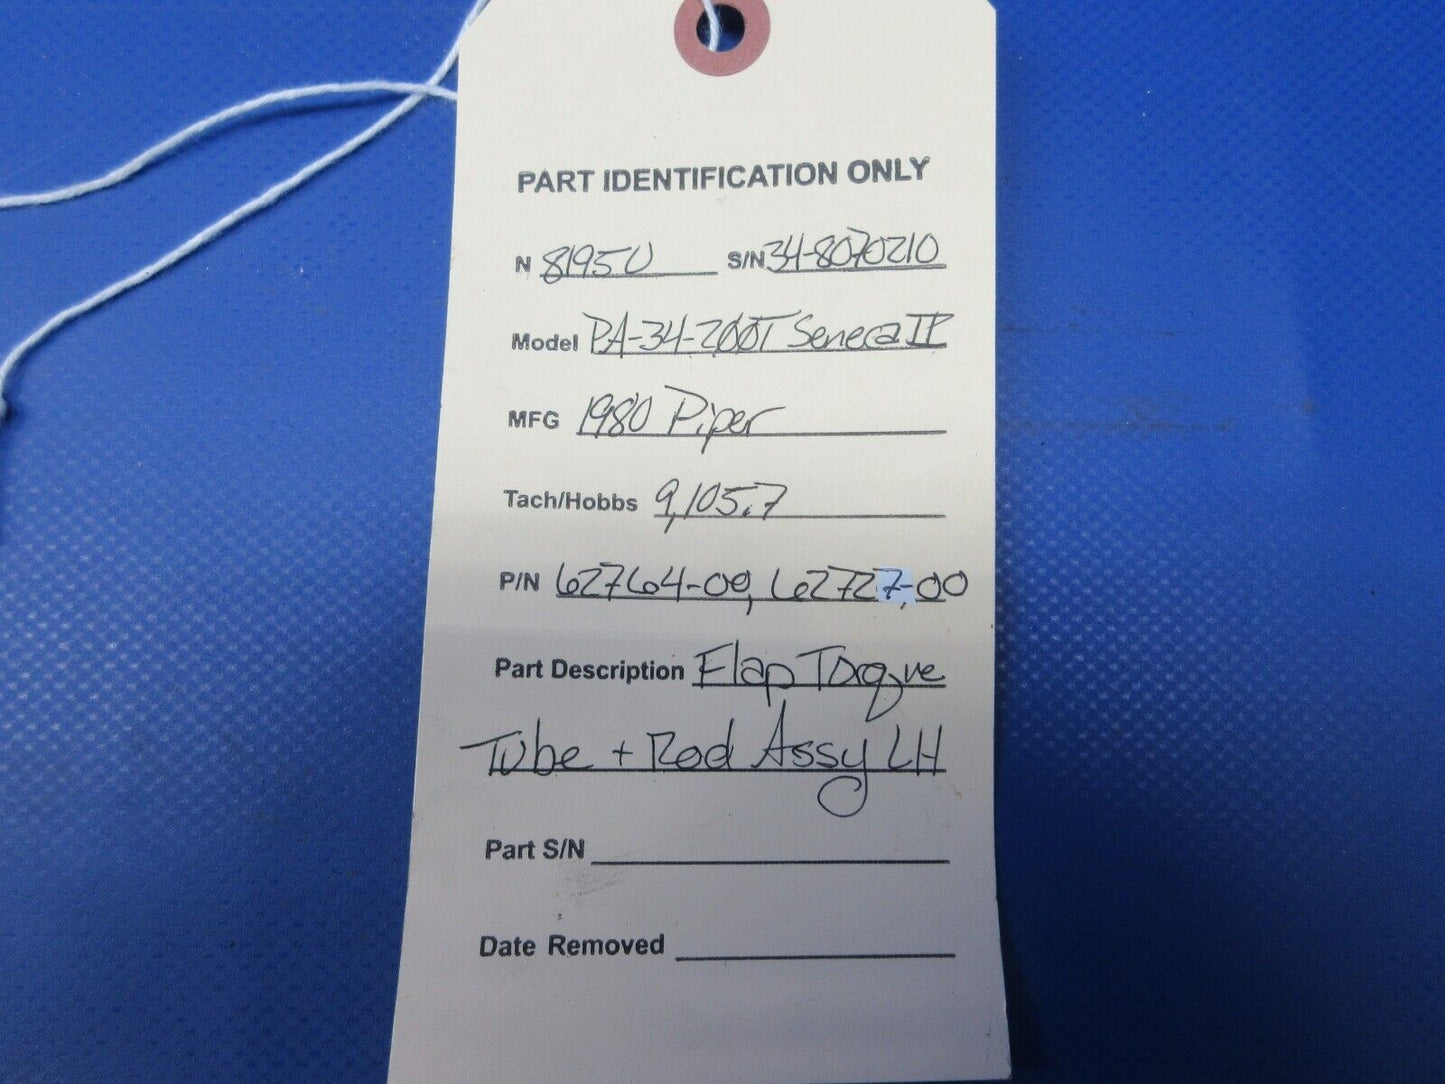 PART IDENTIFICATION ONLY
N 8195U S/N 34-8070210
Model PA-34-200T Seneca II
MFG 1980 Piper
Tach/Hobbs 9,105.7
P/N 62764-00, 62727-00
Part Description Flap Torque
Tube + Rod Assy LH
Part S/N
Date Removed